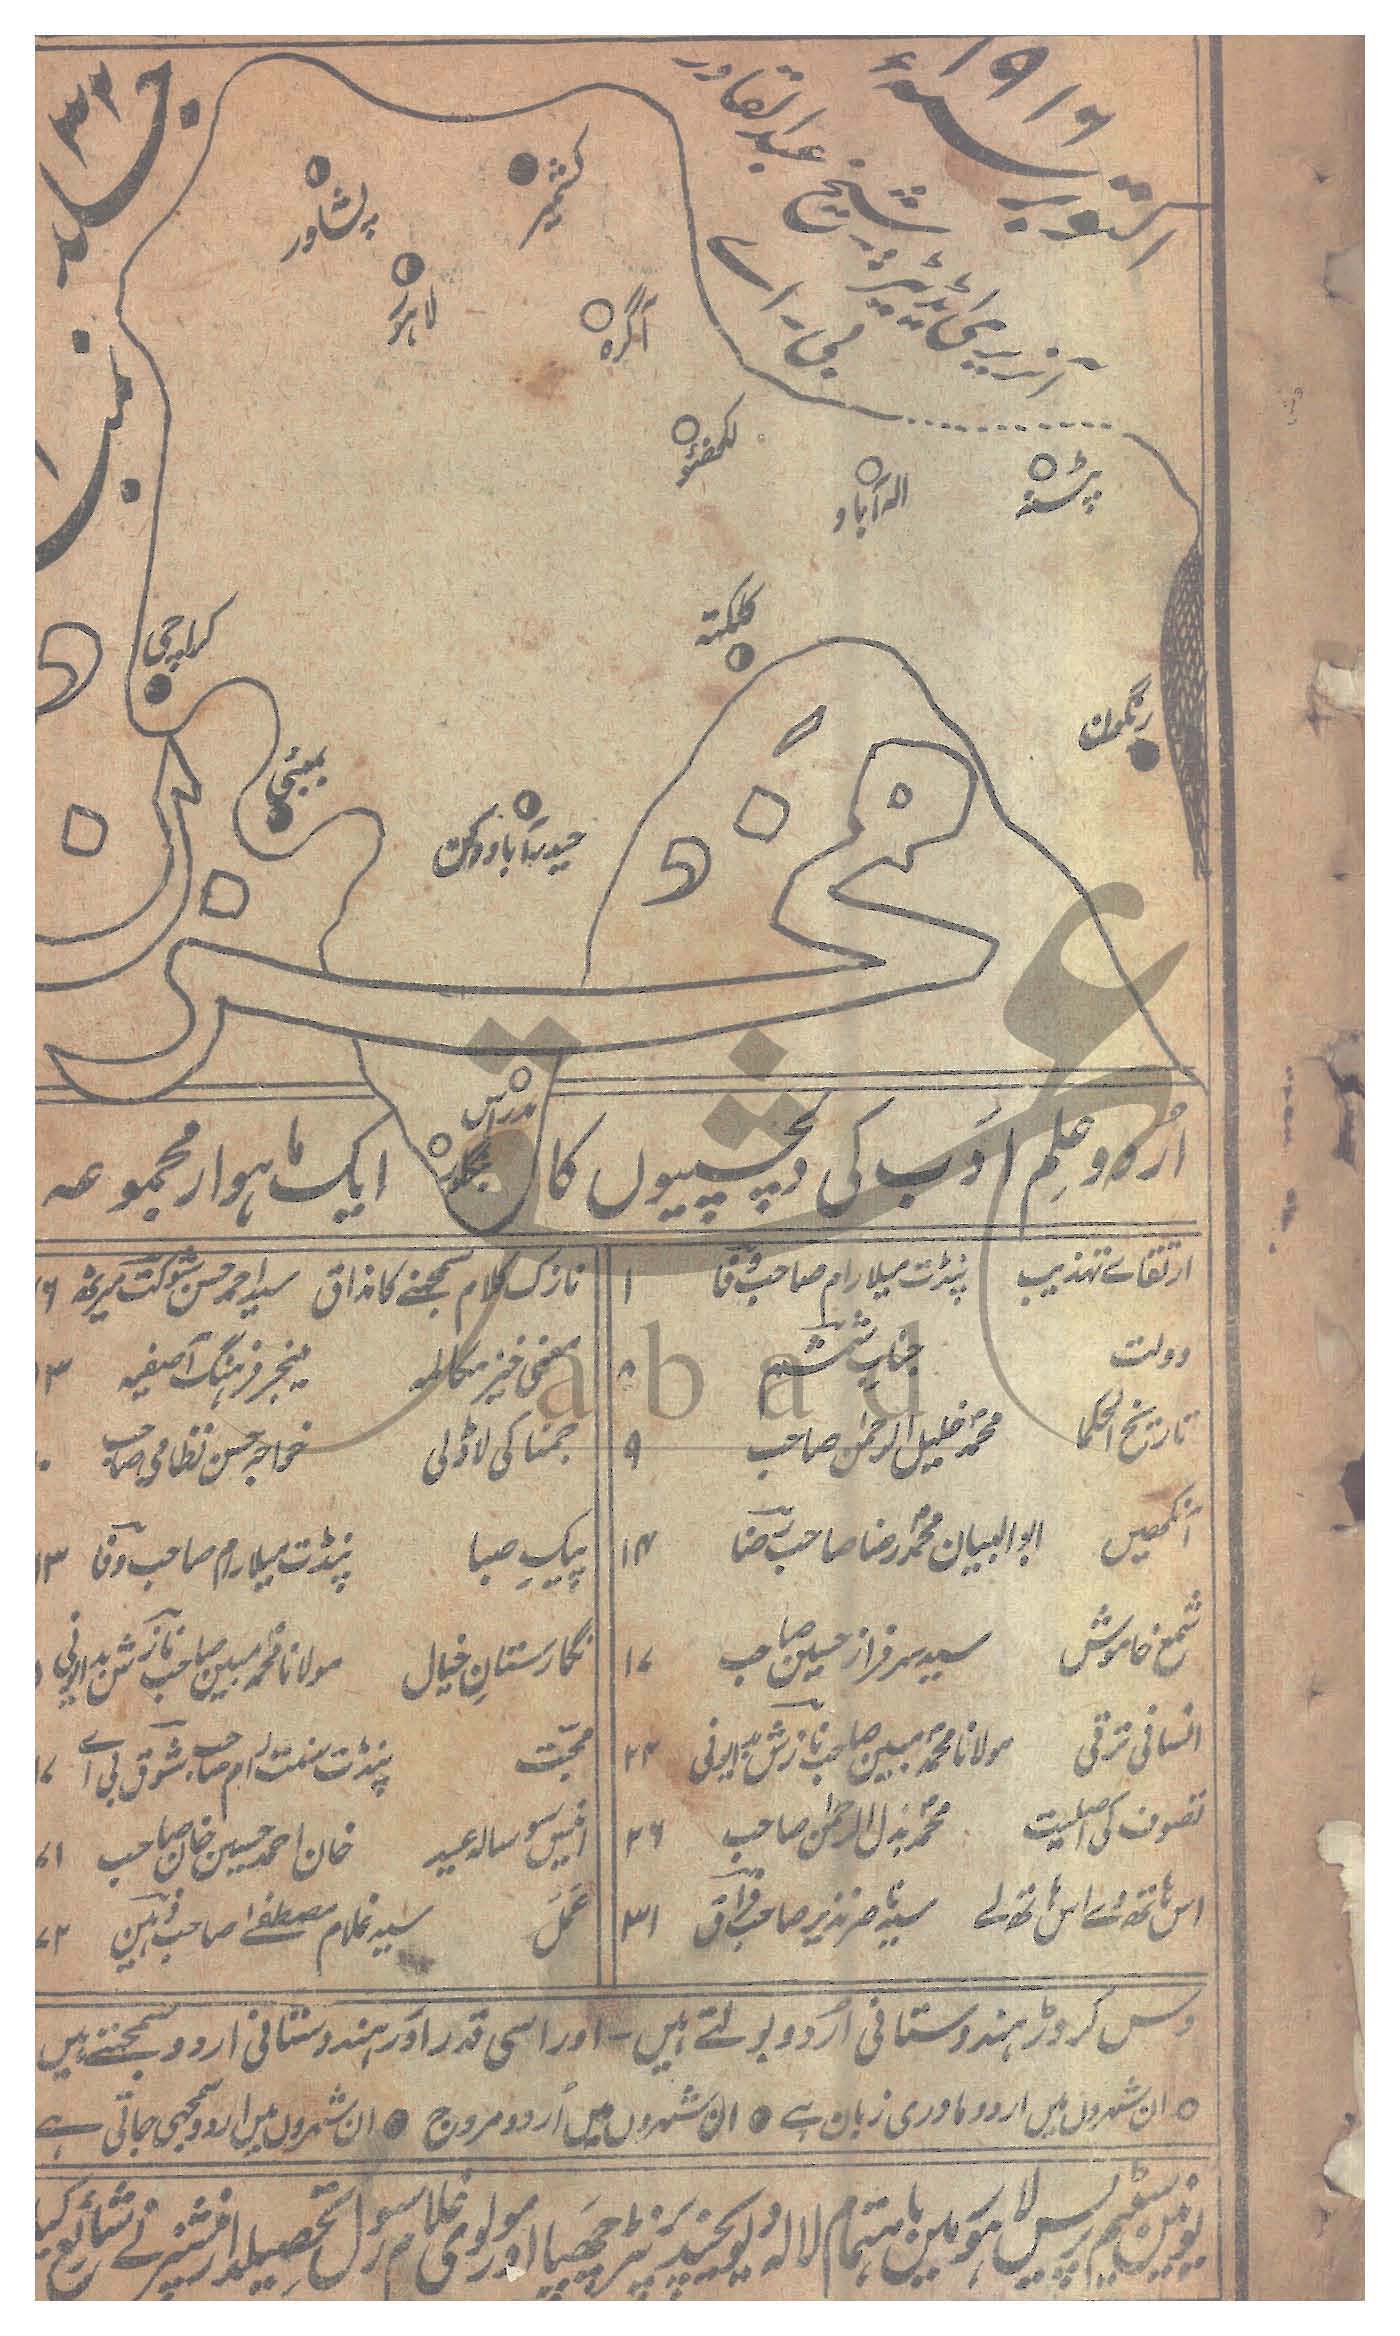 اکتوبر ۱۹۱۶ء
جلد ۳۲
نمبر ۱
آنریری ایڈیٹر
شیخ عبدالقادر
بی۔اے
کشمیر
پشاور
لاہور
آگرہ
لکھنؤ
الہ آباد
پٹنہ
کلکتہ
کراچی
رنگون
بمبئی
حیدرآباد دکن
مخزن
مدراس
بنگلور
اُردو علم ادب کی دلچسپیوں کا ایک ماہوار مجموعہ
ارتقائے تہذیب پنڈت میلارام صاحب وفا ۱
دولت جناب
تاریخ الحکما محمد خلیل الرحمٰن صاحب ۹
آنکھیں ابوالبیان محمد رضا صاحب رضا ۱۴
شمع خاموش سید سرفراز حسین صاحب ۱۷
انسانی ترقی مولانا محمد مبین صاحب نازش بدایونی ۲۴
تصوف کی اصلیت محمد بذل الرحمٰن صاحب ۲۶
اس ہاتھ دے اس ہاتھ لے سید ناصر نذیر صاحب فراق ۳۱
نازک کلام سمجھنے کا مذاق سید احمد حسن شوکت میرٹھ
معنی خیز مکالمہ مینجر فرہنگ آصفیہ
جمنا کی لاڈلی خواجہ حسن نظامی صاحب
پیکِ صبا پنڈت میلارام صاحب وفا
نگارستانِ خیال مولانا محمد مبین صاحب نازش بدایونی
محبّت پنڈت سنت رام صاحب شوق بی اے
انیس سو سالہ عید خان احمد حسین خان صاحب
عمل سید غلام مصطفےٰ صاحب ذہین
دس کروڑ ہندوستانی اُردو بولتے ہیں۔ اور اسی قدر اور ہندوستانی اردو سمجھتے ہیں
○ ان شہروں میں اردو مادری زبان ہے ◑ ان شہروں میں اُردو مروج ● ان شہروں میں اردو سمجھی جاتی ہے
یونین سٹیم پریس لاہور میں باہتمام لالہ دیوی چند پرنٹر چھپا اور مولوی غلام رسول تحصیلدار پنشنر نے شائع کیا
عشق
abad